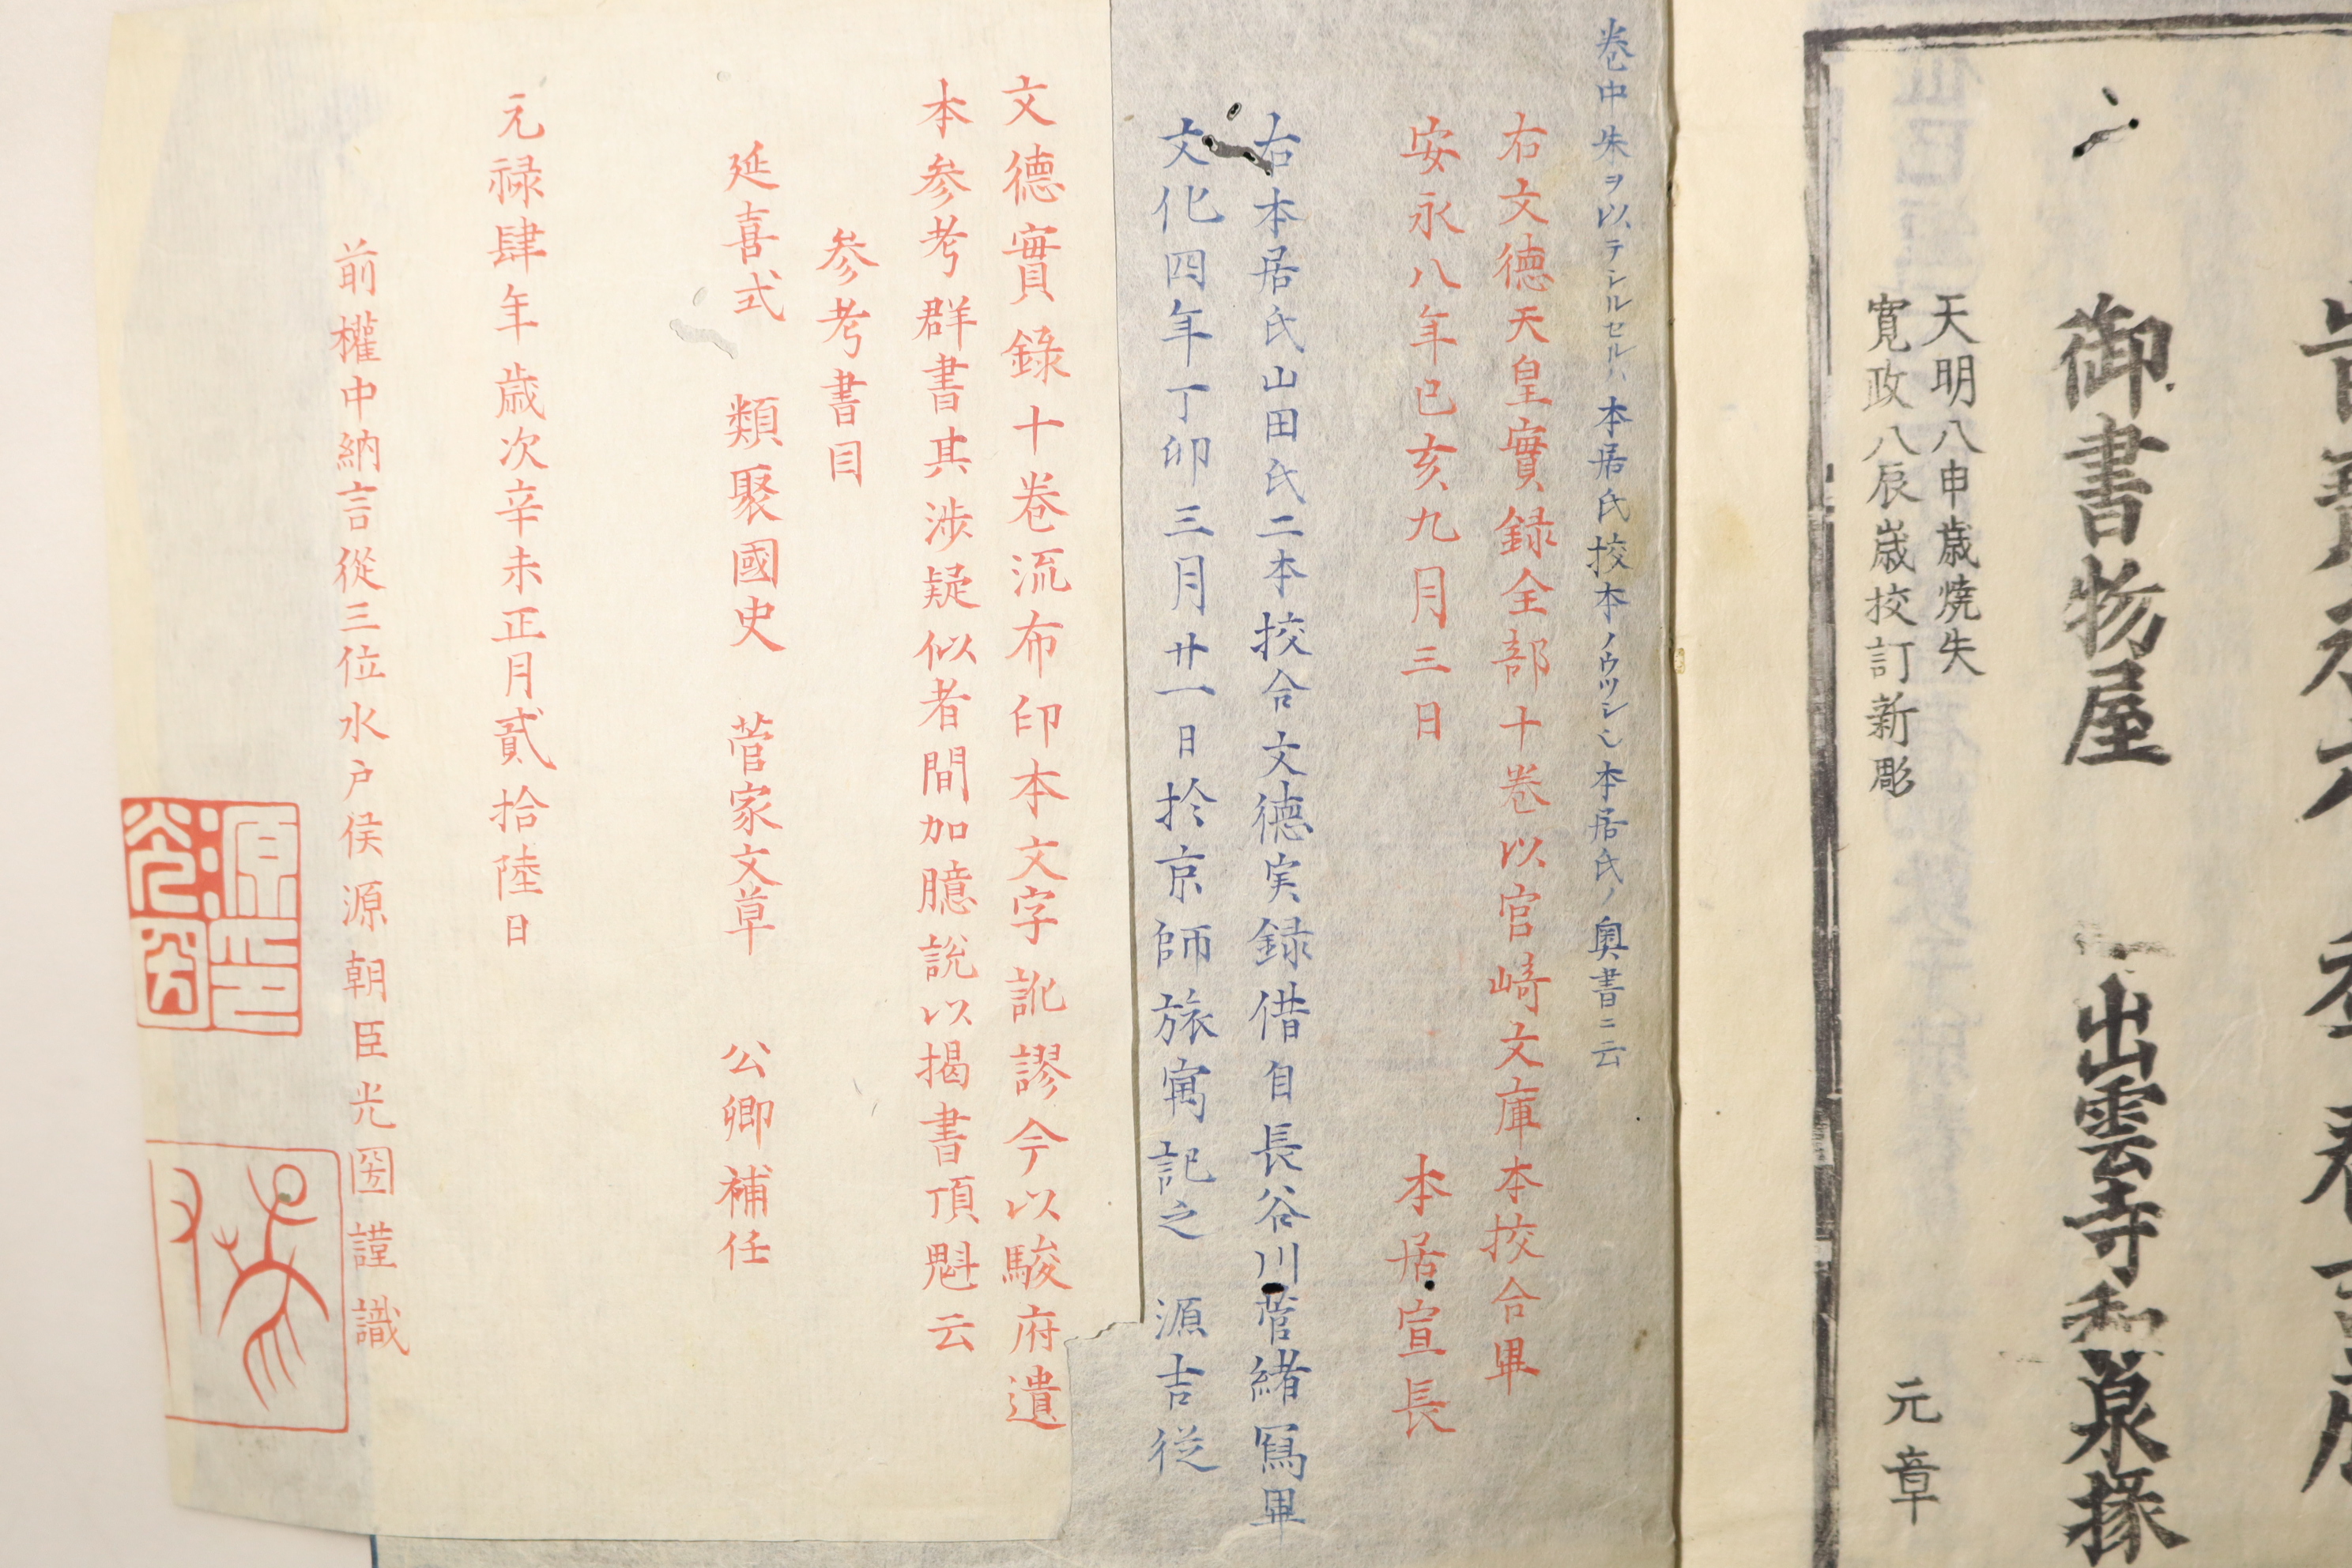 御書物屋 出雲寺和泉掾
天明八申歳焼失
寛政八辰歳挍訂新彫 元章
巻中朱ヲ以テシルセルハ本居氏挍本ノウツシ也本居氏ノ奥書ニ云
右文徳天皇實録全部十巻以宮﨑文庫本挍合畢
安永八年已亥九月三日 本居宣長
右本居氏山田氏二本挍合文徳実録借自長谷川菅緒冩畢
文化四年丁卯三月廿一日於京師旅寓記之 源吉従
文德實錄十卷流布印本文字訛謬今以駿府遺
本參考群書其涉疑似者間加臆說以揭書頂魁云
參考書目
延喜式 類聚國史 菅家文草 公卿補任
元禄肆年歳次辛未正月貳拾陸日
前權中納言從三位水戸侯源朝臣光圀謹識